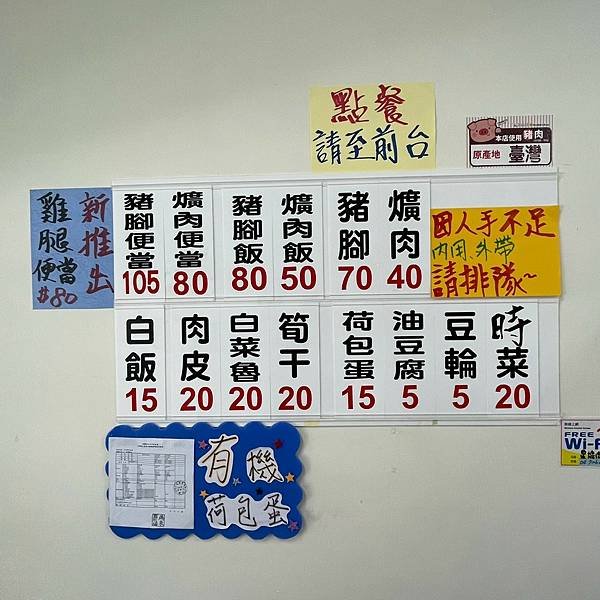 點餐
請至前台
本店使用豬肉
原產地 臺灣
新推出
雞腿便當
#80
豬腳便當 105
爌肉便當 80
豬腳飯 80
爌肉飯 50
豬腳 70
爌肉 40
因人手不足
內用、外帶
請排隊~
白飯 15
肉皮 20
白菜魯 20
筍干 20
荷包蛋 15
油豆腐 5
豆輪 5
時菜 20
有機
荷包蛋
FREE
Wi-F